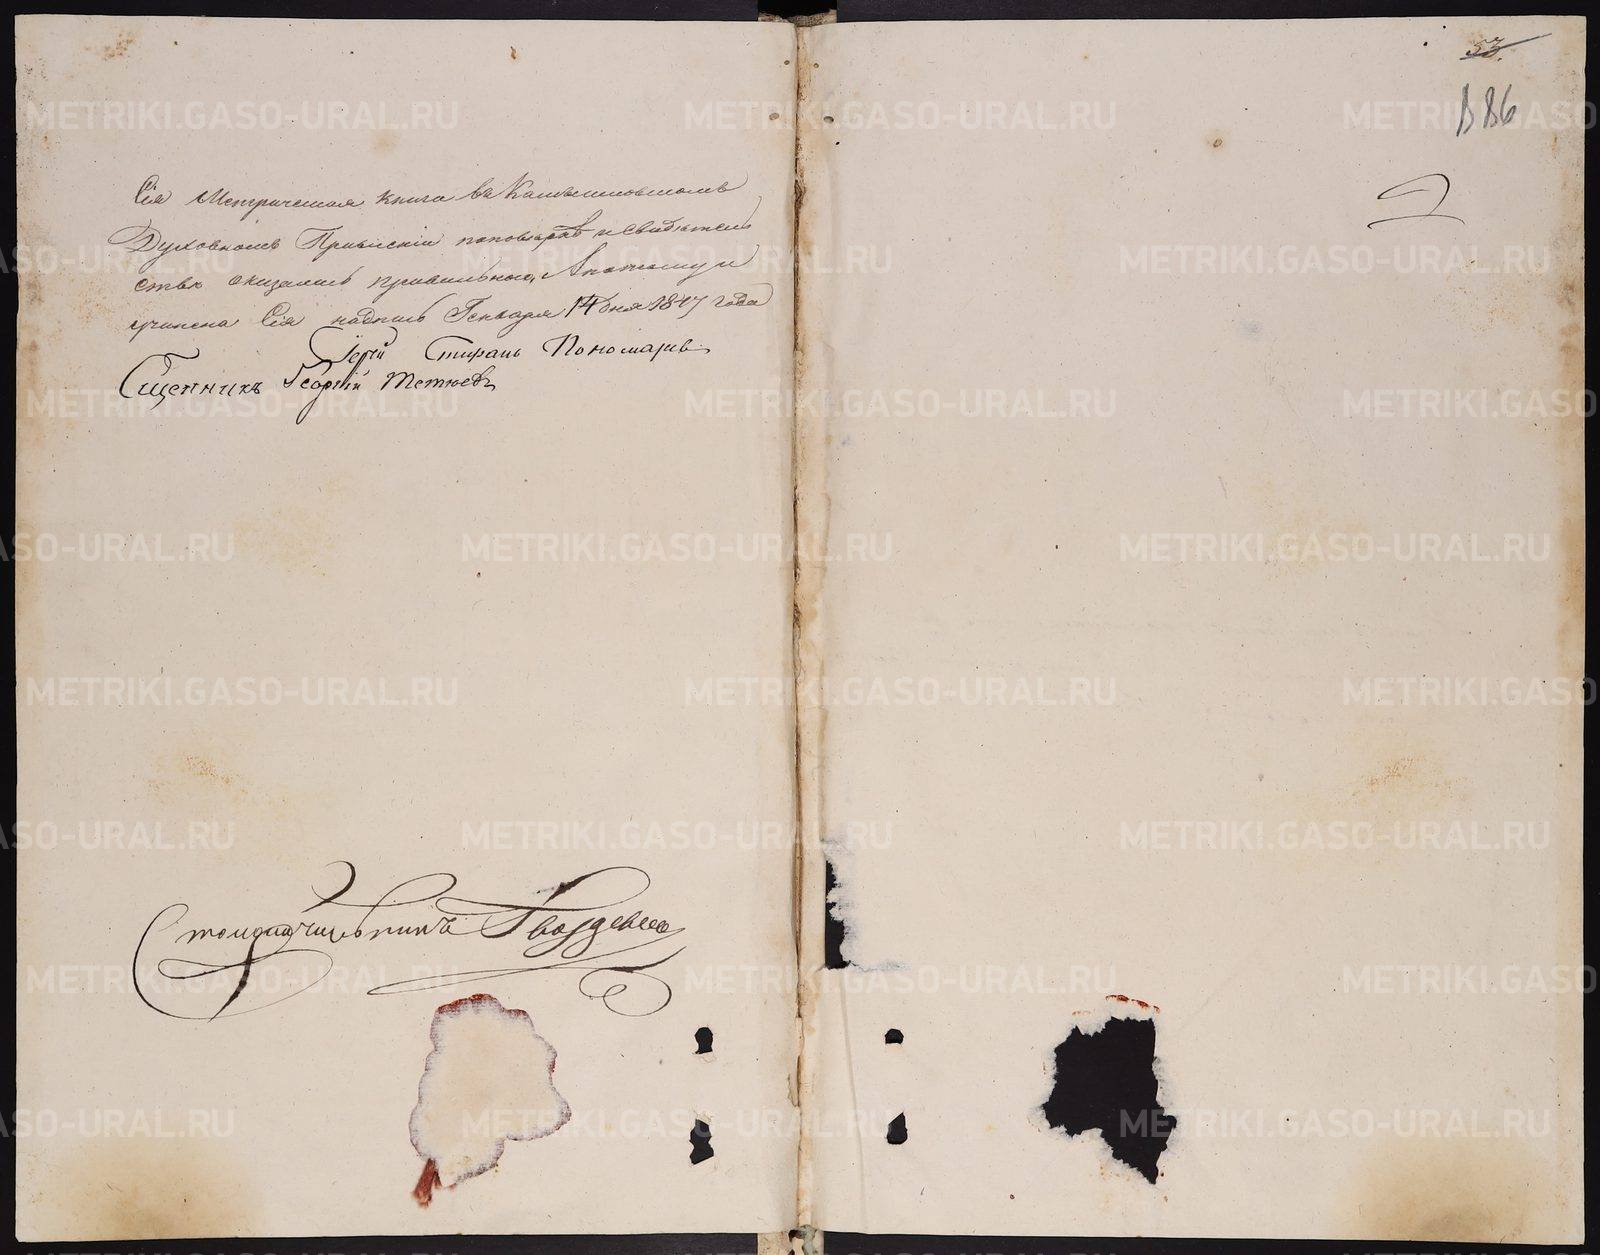 Сія Метрическая книга въ Камышловскомъ
Духовномъ Правленіи поповѣркѣ и свидѣтель
ству оказалась правильною, А потому и
учинена Сія надпись Генваря 14 дня 1847 года
Іерей Стефанъ Пономаревъ
Сщенникъ Георгій Тетюевъ
Столоначальникъ Гвоздевъ
53.
186
METRIKI.GASO-URAL.RU